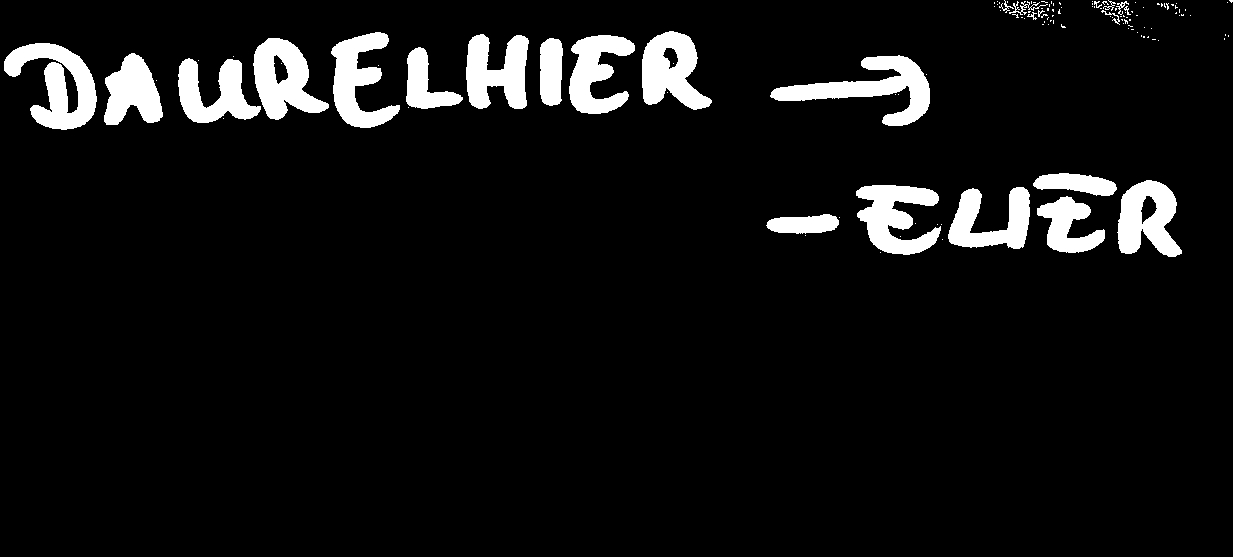 DAURELHIER →
- ELIER